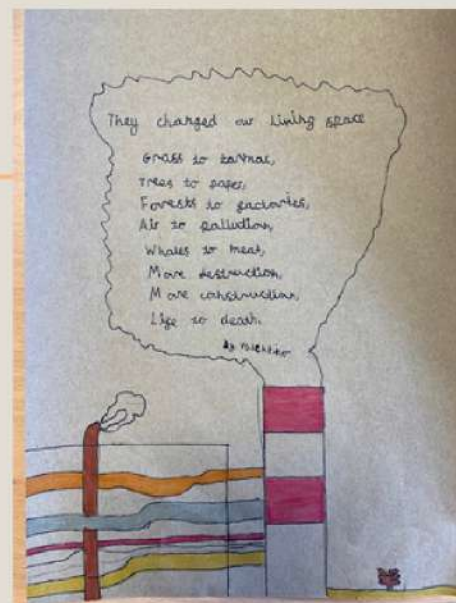 They changed our lining space
Grass to tarmac,
Trees to paper,
Forests to factories,
Air to pollution,
Whales to meat,
More destruction,
More construction,
Life to death.
By